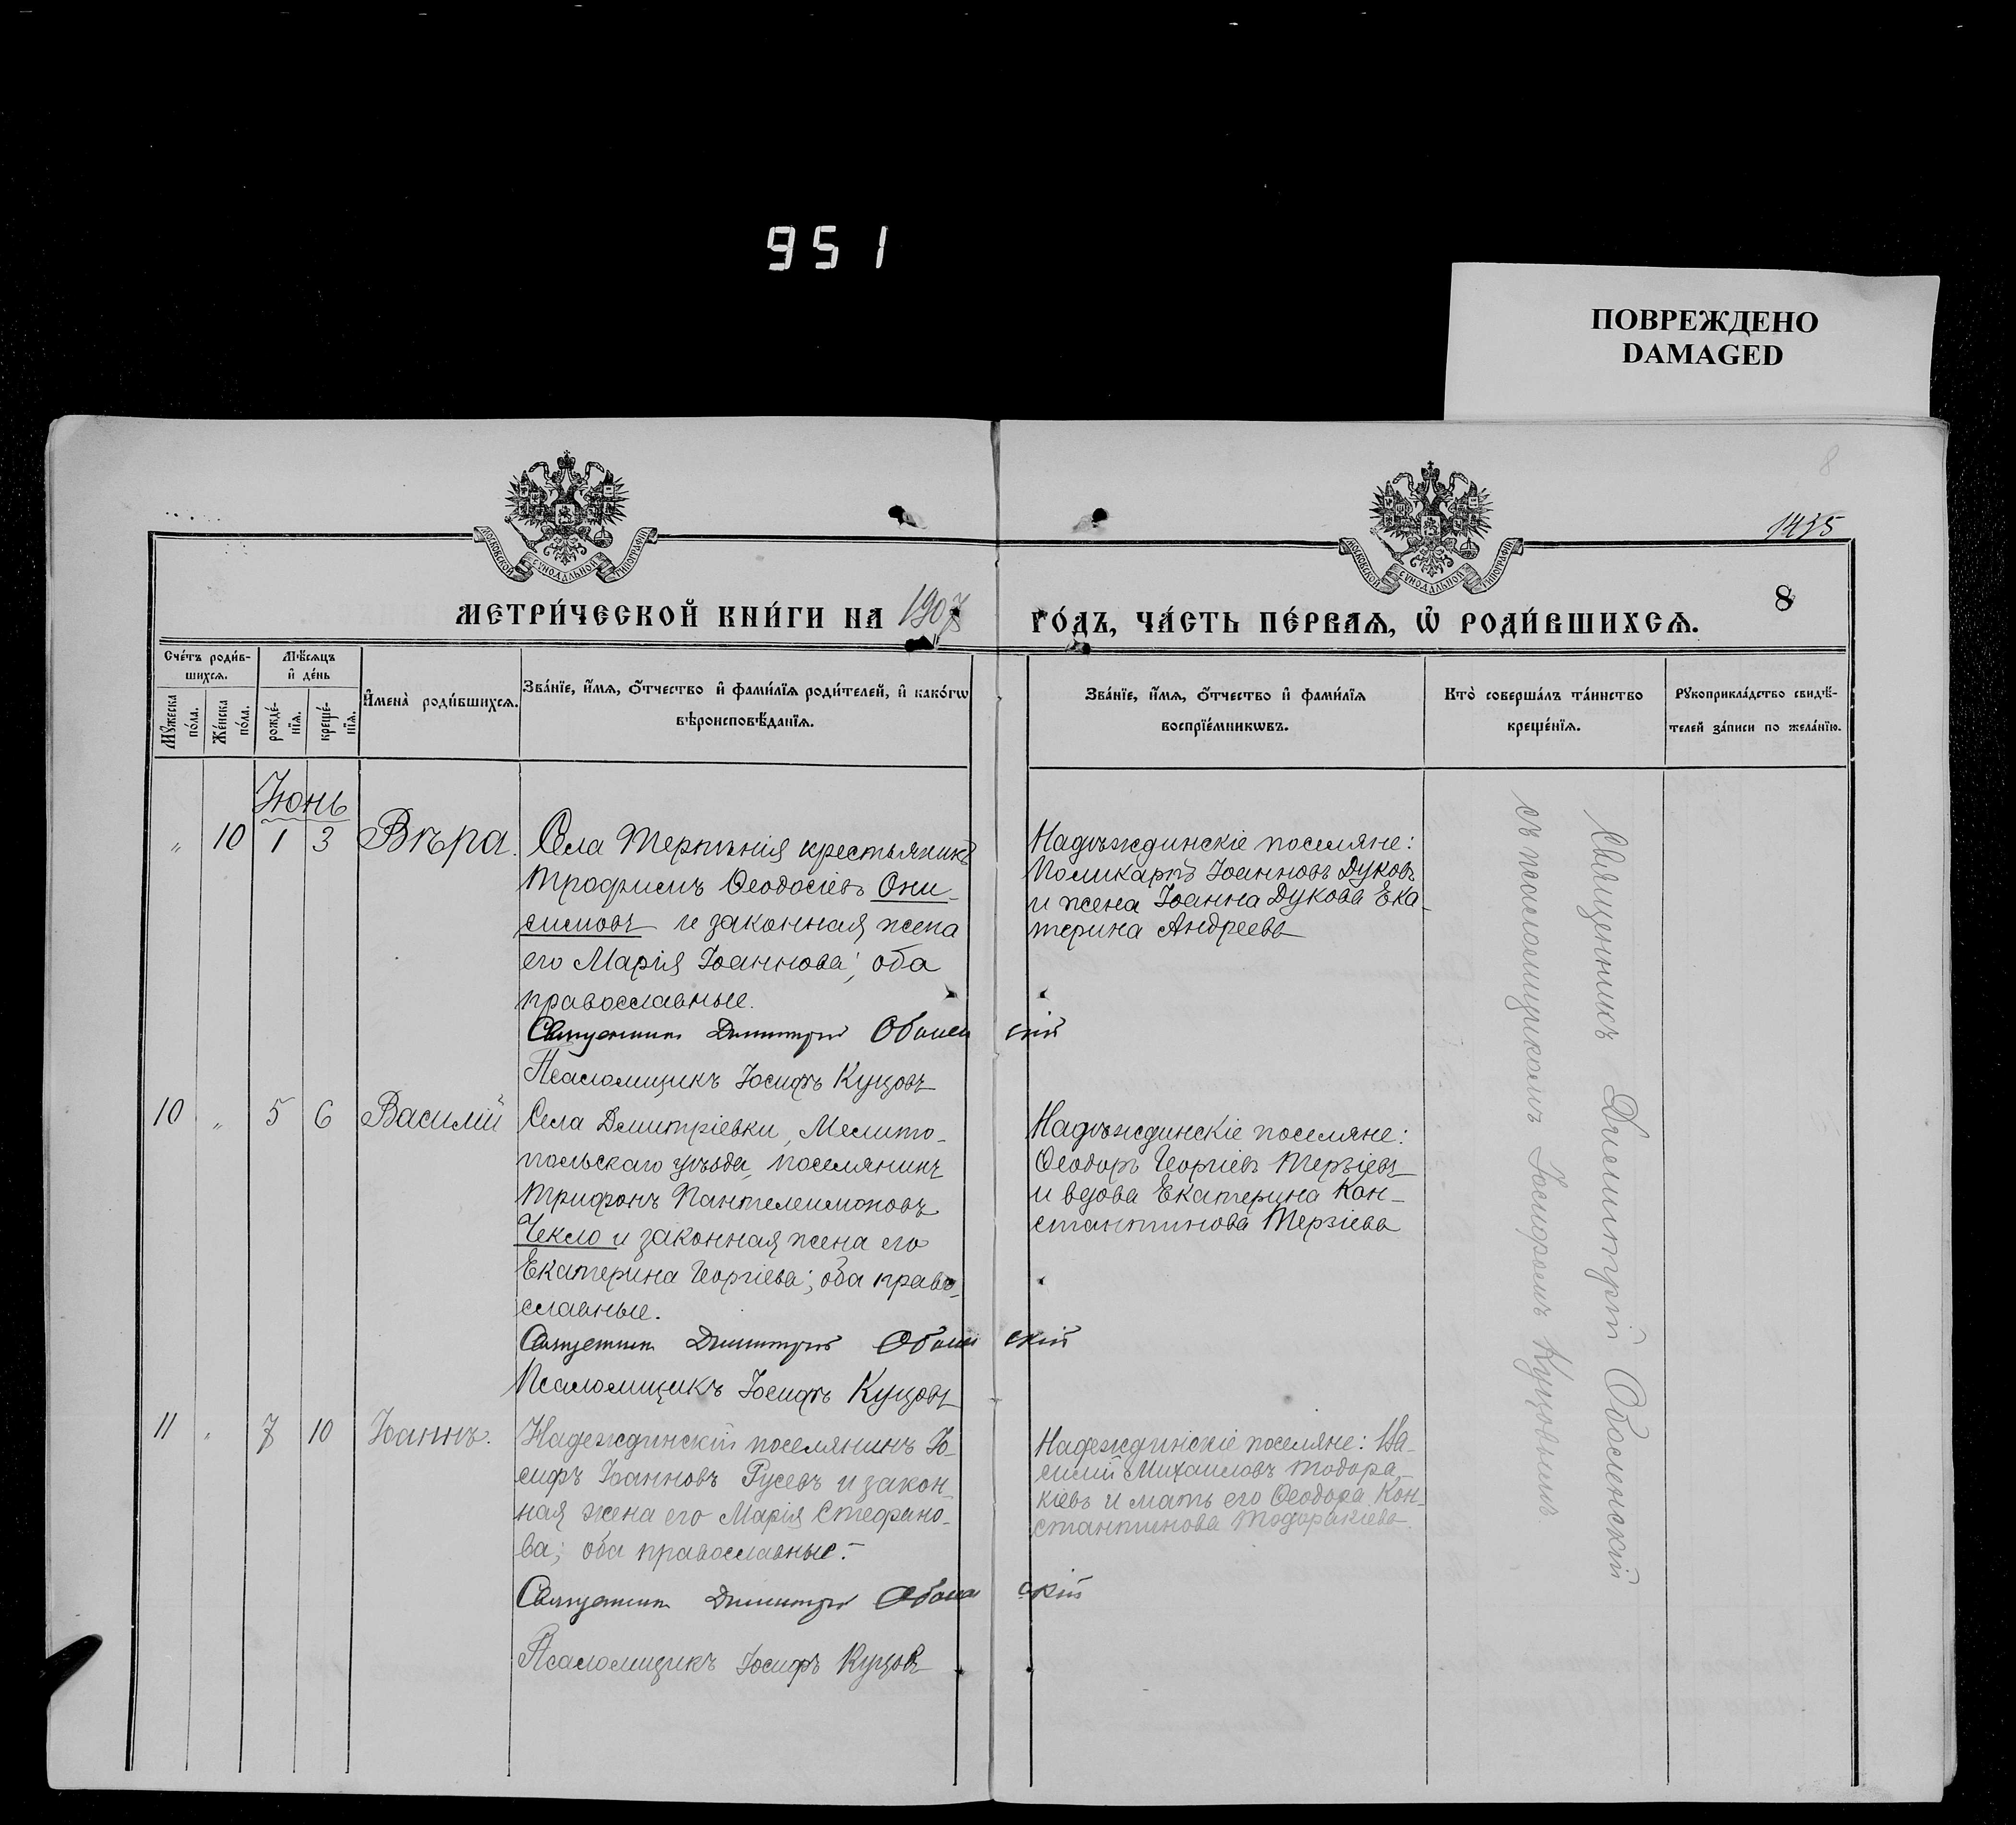 951
ПОВРЕЖДЕНО
DAMAGED
8
1435
МОСКОВСКОЙ СѴНОДАЛЬНОЙ ТИПОГРАФІИ
МОСКОВСКОЙ СѴНОДАЛЬНОЙ ТИПОГРАФІИ
МЕТРИ́ЧЕСКОЙ КНИ́ГИ НА 1907 ГО́ДЪ, ЧА́СТЬ ПЕ́РВАѦ, Ѡ҆ РОДИ́ВШИХСѦ.
8
Сче́тъ роди́в-
шихсѧ.
Мꙋжеска по́ла.
Же́нска по́ла.
Мѣ́сѧцъ
и҆ де́нь
рожде́-
нїѧ.
креще́-
нїѧ.
И҆мена̀ роди́вшихсѧ.
Зва́нїе, и҆́мѧ, ѻ҆́тчество и҆ фами́лїѧ роди́телей, и҆ како́гѡ
вѣроисповѣ́данїѧ.
Зва́нїе, и҆́мѧ, ѻ҆́тчество и҆ фами́лїѧ
воспрїе́мникѡвъ.
Кто̀ соверша́лъ та́инство
креще́нїѧ.
Рꙋкоприкла́дство свидѣ́-
телей за́писи по жела́нїю.
Іюнь
„ 10 1 3 Вѣра.
Села Терпѣнія крестьянинъ
Трофимъ Ѳеодосіевъ Они-
симовъ и законная жена
его Марія Іоаннова; оба
православные.
Священникъ Димитрій Оболенскій
Псаломщикъ Іосифъ Куцовъ
Надѣждинскіе поселяне:
Поликарпъ Іоанновъ Дуковъ
и жена Іоанна Дукова Ека-
терина Андреева
10 „ 5 6 Василій
Села Дмитріевки, Мелито-
польскаго уѣзда, поселянинъ
Трифонъ Пантелеимоновъ
Чекло и законная жена его
Екатерина Георгіева; оба право-
славные.
Священникъ Димитрій Оболенскій
Псаломщикъ Іосифъ Куцовъ
Надѣждинскіе поселяне:
Ѳеодоръ Георгіевъ Терзіевъ
и вдова Екатерина Кон-
стантинова Терзіева
11 „ 7 10 Іоаннъ.
Надеждинскій поселянинъ Іо-
сифъ Іоанновъ Русевъ и закон-
ная жена его Марія Стефано-
ва; оба православные.-
Священникъ Димитрій Оболенскій
Псаломщикъ Іосифъ Куцовъ
Надеждинскіе поселяне: Ва-
силій Михаиловъ Тодора-
кіевъ и мать его Ѳеодора Кон-
стантинова Тодоракіева
Священникъ Димитрій Оболенскій
съ псаломщикомъ Іосифомъ Куцовымъ